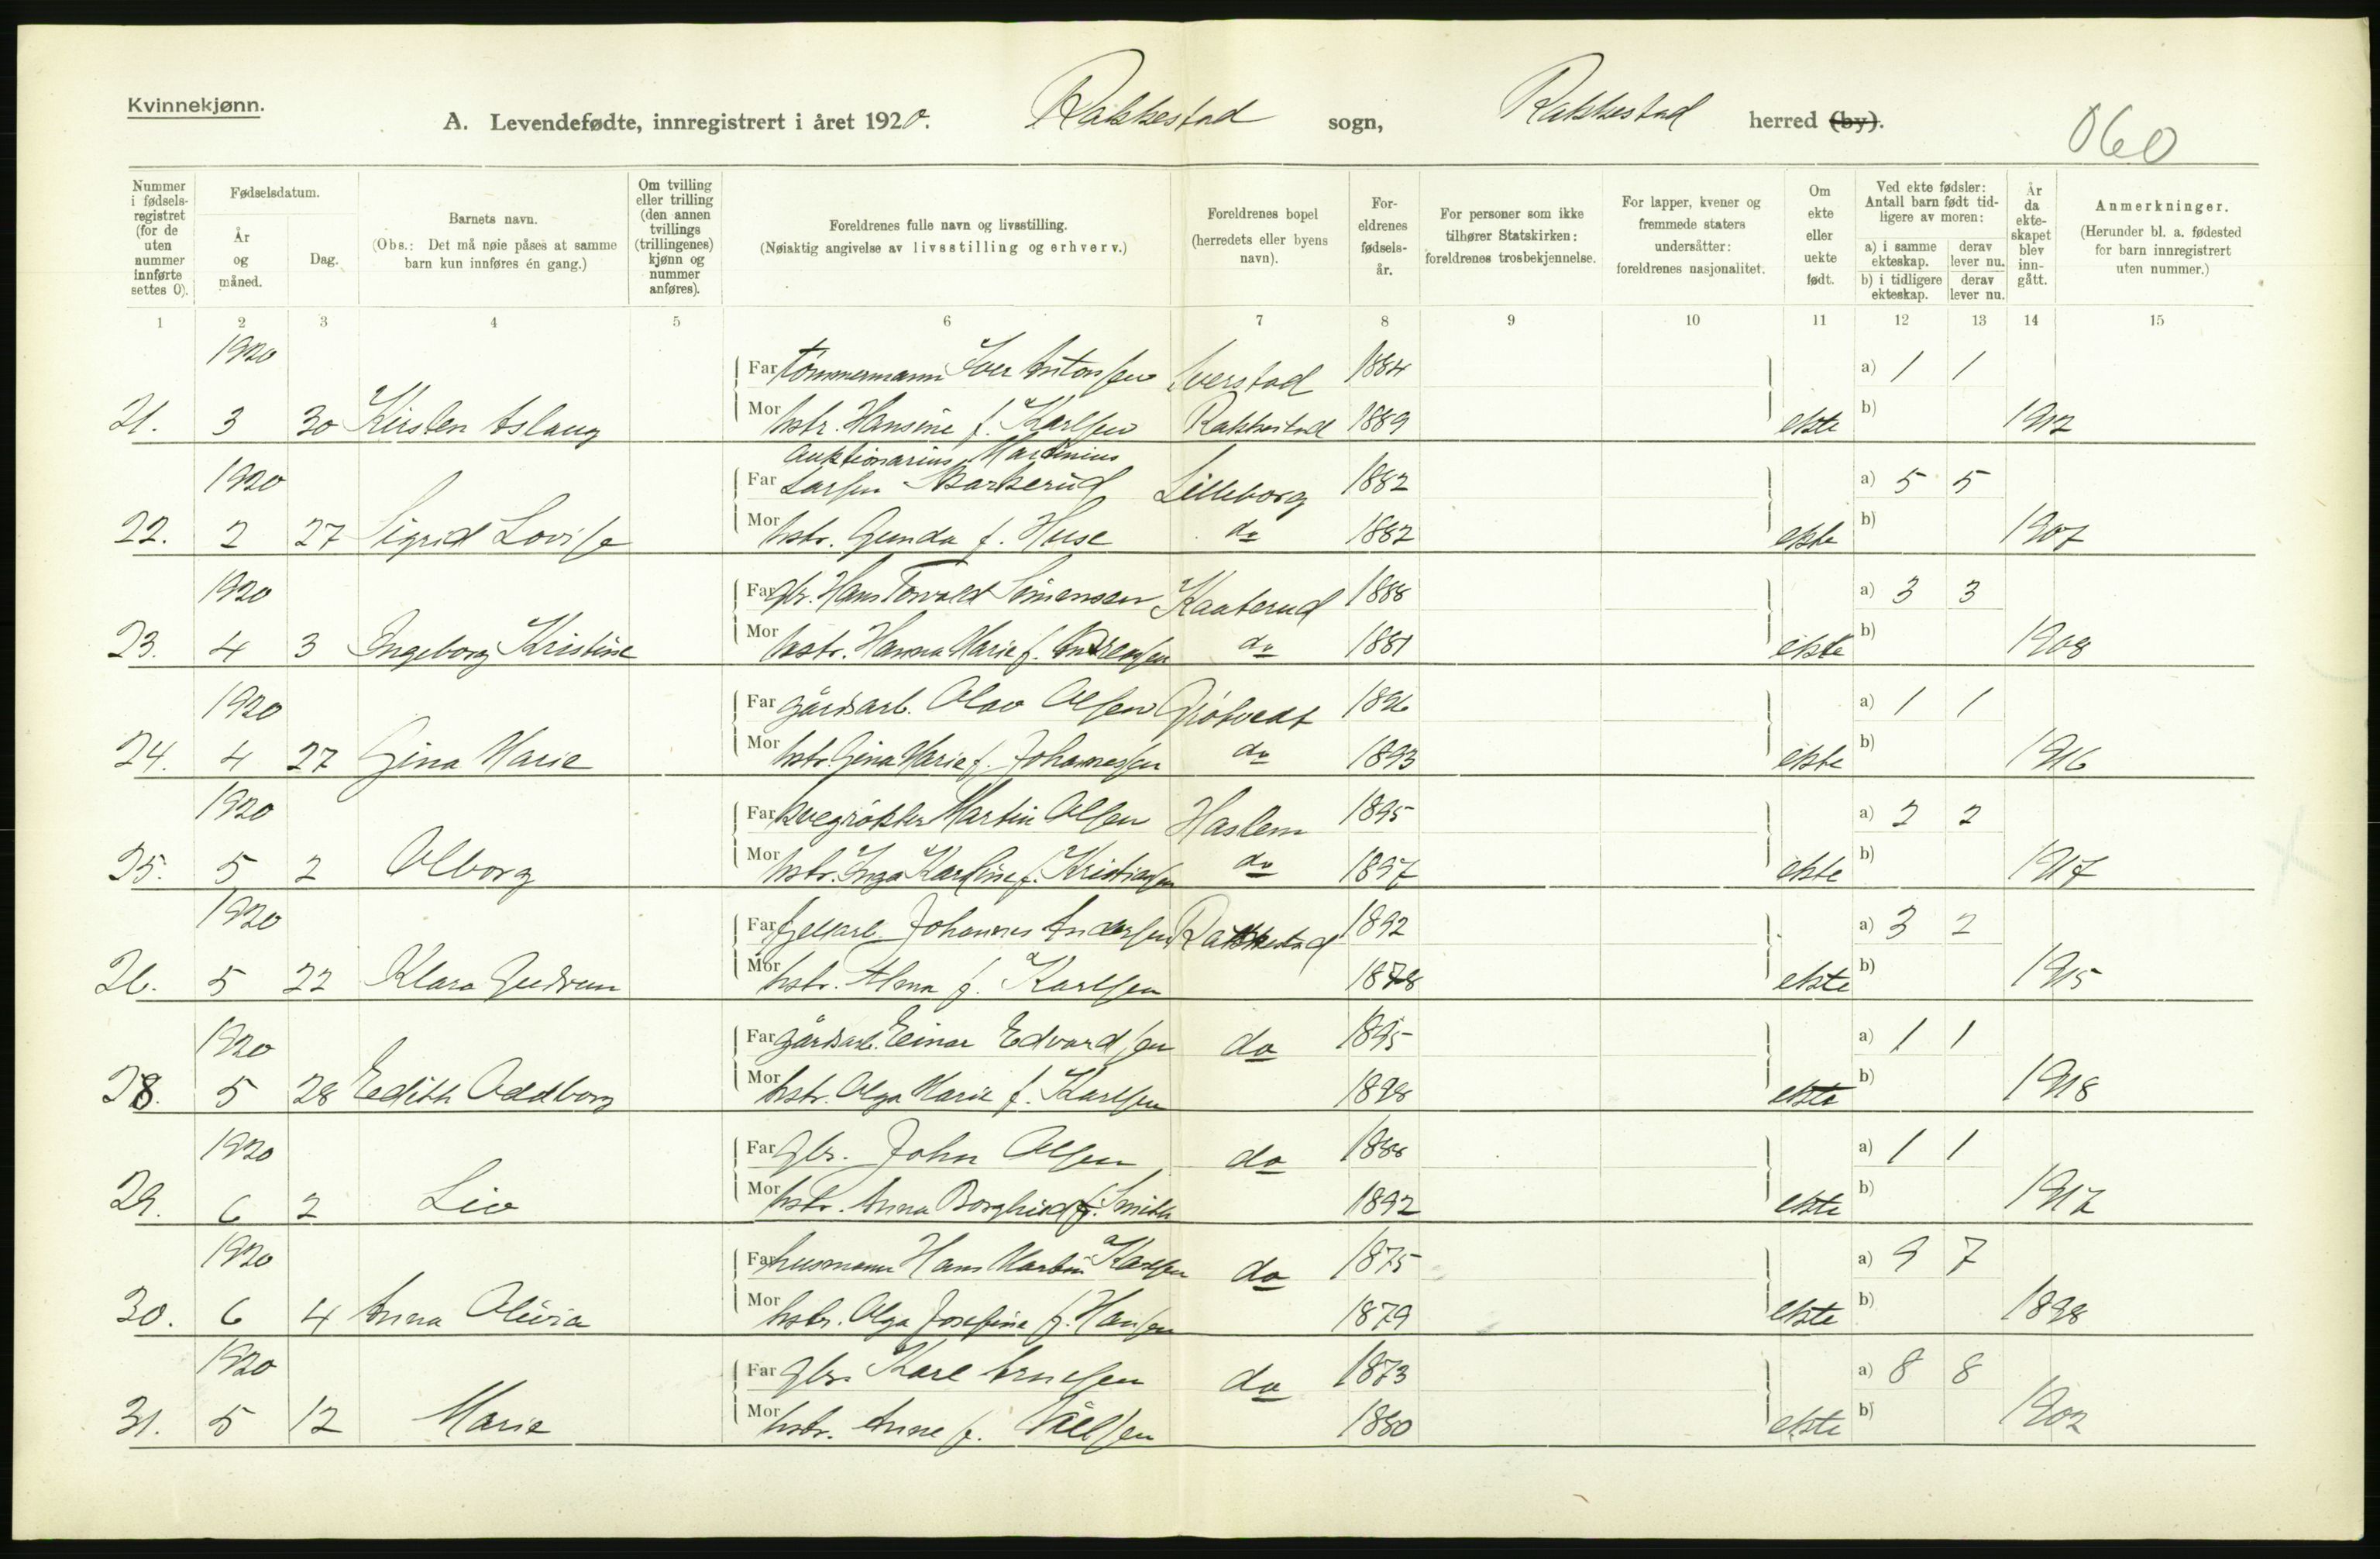 Kvinnekjønn.
A. Levendefødte, innregistrert i året 1920. Rakkestad sogn, Rakkestad herred (by).
060
Nummer i fødselsregistret (for de uten nummer innførte settes 0).
Fødselsdatum.
År og måned.
Dag.
Barnets navn.
(Obs.: Det må nøie påses at samme barn kun innføres én gang.)
Om tvilling eller trilling (den annen tvillings (trillingenes) kjønn og nummer anføres).
Foreldrenes fulle navn og livsstilling.
(Nøiaktig angivelse av livsstilling og erhverv.)
Foreldrenes bopel (herredets eller byens navn).
Foreldrenes fødselsår.
For personer som ikke tilhører Statskirken: foreldrenes trosbekjennelse.
For lapper, kvener og fremmede staters undersåtter: foreldrenes nasjonalitet.
Om ekte eller uekte født.
Ved ekte fødsler: Antall barn født tidligere av moren:
a) i samme ekteskap. derav lever nu.
b) i tidligere ekteskap. derav lever nu.
År da ekteskapet blev inngått.
Anmerkninger.
(Herunder bl. a. fødested for barn innregistrert uten nummer.)
1 2 3 4 5 6 7 8 9 10 11 12 13 14 15
1920 Far tömmermann Iver Antonsen Sverstad 1884 a) 1 1
21. 3 30 Kirsten Aslaug Mor hstr. Hansine f. Karlsen Rakkestad 1889 ekte b) 1912
Auktionarius Martinius
1920 Far Larsen Skarkerud Lilleborg 1882 a) 5 5
22. 2 27 Sigrid Lovise Mor hstr. Gunda f. Huse do 1882 ekte b) 1907
1920 Far gbr. Hans Torvald Simensen Kaaterud 1888 a) 3 3
23. 4 3 Ingeborg Kristine Mor hstr. Hanna Marie f. Andreasen do 1881 ekte b) 1908
1920 Far gårdsarb. Olav Olsen Grötvedt 1896 a) 1 1
24. 4 27 Gina Marie Mor hstr. Gina Marie f. Johannessen do 1893 ekte b) 1916
1920 Far kvegrökter Martin Olsen Haslem 1895 a) 2 2
25. 5 2 Olborg Mor hstr. Inga Karoline f. Kristiansen do 1897 ekte b) 1917
1920 Far Johannes Andersen Rakkestad 1892 a) 3 2
26. 5 22 Klara Gudrun Mor hstr. Alma f. Karlsen 1878 ekte b) 1915
1920 Far gårdsarb. Einar Edvardsen do 1895 a) 1 1
28. 5 28 Edith Oddborg Mor hstr. Olga Marie f. Karlsen 1898 ekte b) 1918
1920 Far gbr. John Olsen do 1888 a) 1 1
29. 6 2 Liv Mor hstr. Anna Borghild f. Smith 1892 ekte b) 1917
1920 Far husmann Hans Martin Karlsen do 1875 a) 9 7
30. 6 4 Anna Olivia Mor hstr. Olga Josefine f. Hansen 1879 ekte b) 1898
1920 Far gbr. Karl Arnesen do 1873 a) 8 8
31. 5 12 Marie Mor hstr. Anne f. Nilsen 1880 ekte b) 1902